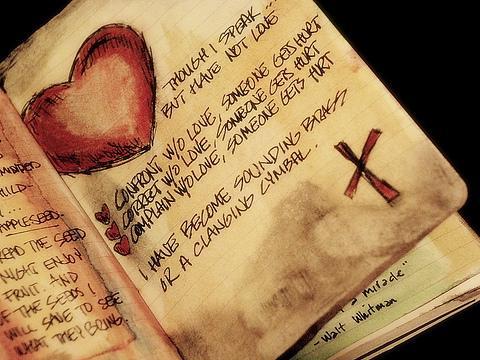 THOUGH I SPEAK...
BUT HAVE NOT LOVE
CONFRONT W/O LOVE, SOMEONE GETS HURT
CORRECT W/O LOVE, SOMEONE GETS HURT
COMPLAIN W/O LOVE, SOMEONE GETS HURT
I HAVE BECOME SOUNDING BRASS
OR A CLANGING CYMBAL.
X
APPLESEED.
READ THE SEED
NIGHT ENJOY
FRUIT. AND
OF THE SEEDS I
WILL SAVE TO SEE
WHAT THEY BRING.
a miracle"
- Walt Whitman